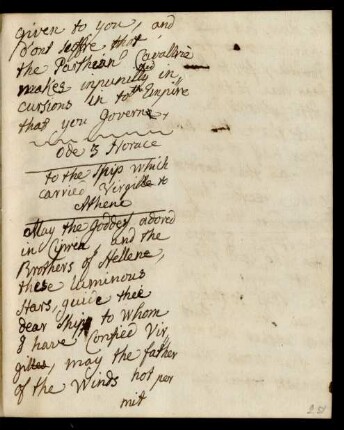 given to you, and
Dont suffre that
the Parthean Cavallrie
makes impunelly in
cursions in to the Empire
that you Governe,
Ode 3 Horace
to the ship which
carried Virgille to
Athene
May the Goddes adored
in Cypren and the
Brothers of Hellene,
these luminous
stars, guide thee
dear ship, to whom
I have Confied Vir,
gilles, may the father
of the Winds not per
mit